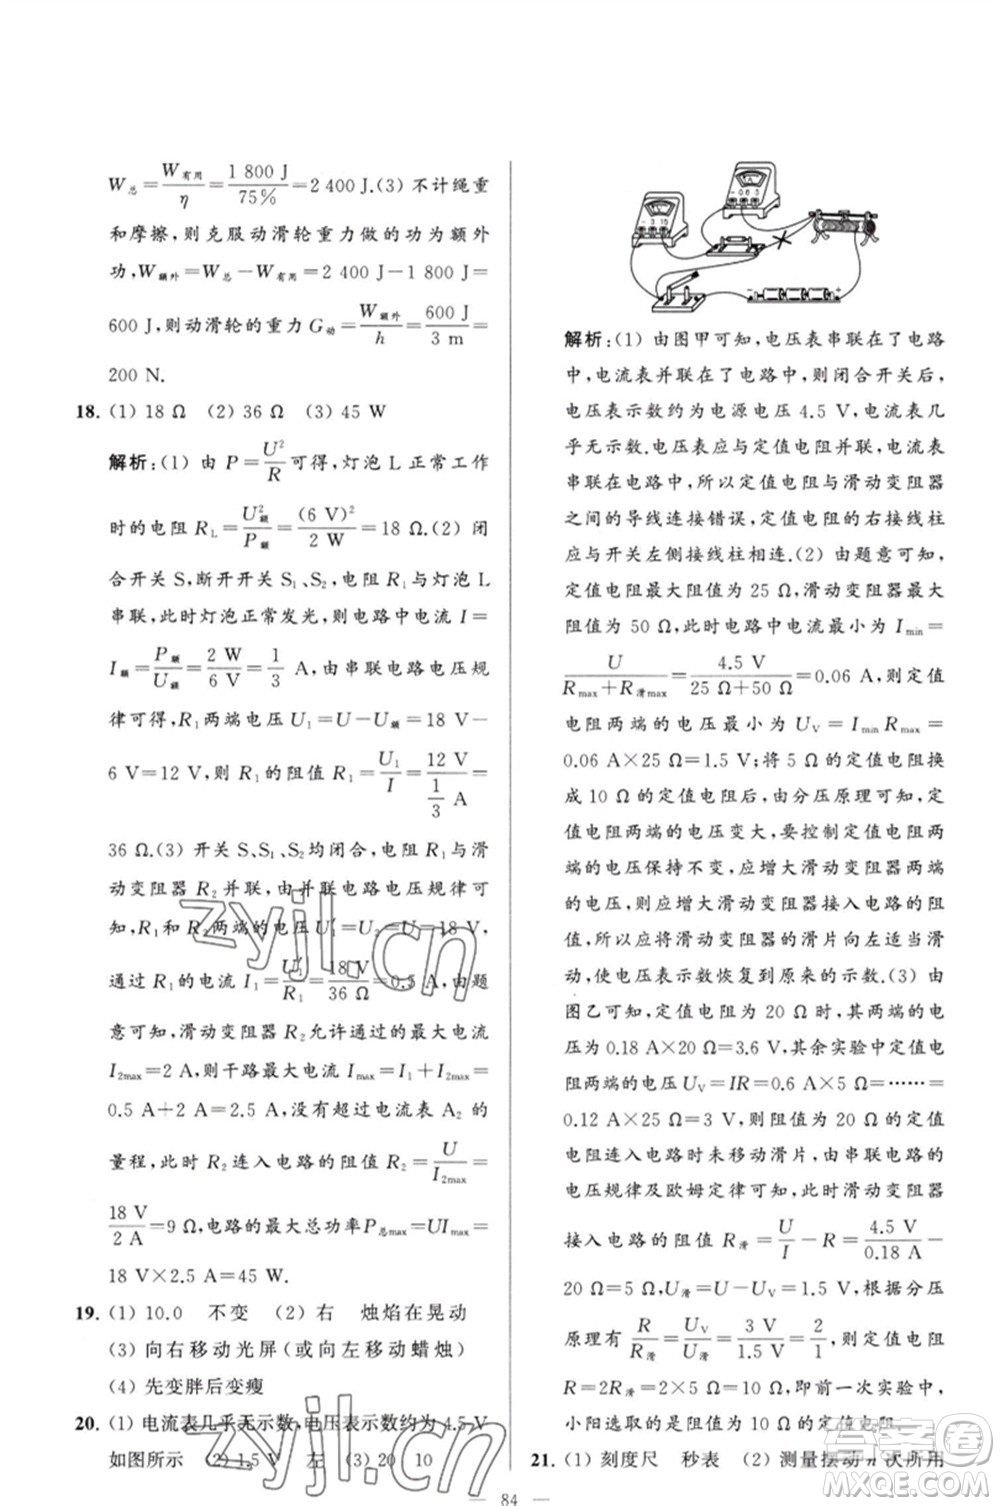 W总=W有用/η=1 800 J/75%=2 400 J.(3) 不计绳重
和摩擦,则克服动滑轮重力做的功为额外
功,W额外=W总-W有用=2 400 J-1 800 J=
600 J,则动滑轮的重力 G动=W额外/h=600 J/3 m=
200 N.
18. (1) 18 Ω (2) 36 Ω (3) 45 W
解析:(1) 由 P=U²/R可得,灯泡 L 正常工作
时的电阻 R_L=U²额/P额=(6 V)²/2 W=18 Ω.(2) 闭
合开关 S,断开开关 S₁、S₂,电阻 R₁与灯泡 L
串联,此时灯泡正常发光,则电路中电流 I=
I额=P额/U额=2 W/6 V=1/3 A,由串联电路电压规
律可得,R₁两端电压 U₁=U-U额=18 V-
6 V=12 V,则 R₁的阻值 R₁=U₁/I=12 V/(1/3 A)=
36 Ω.(3) 开关 S、S₁、S₂均闭合,电阻 R₁与滑
动变阻器 R₂并联,由并联电路电压规律可
知,R₁和 R₂两端的电压 U₁′=U₂=U=18 V,
通过 R₁的电流 I₁=U₁′/R₁=18 V/36 Ω=0.5 A,由题
意可知,滑动变阻器 R₂允许通过的最大电流
I₂max=2 A,则干路最大电流 Imax=I₁+I₂max=
0.5 A+2 A=2.5 A,没有超过电流表 A₂的
量程,此时 R₂连入电路的阻值 R₂=U/I₂max=
18 V/2 A=9 Ω,电路的最大总功率P总max=UImax=
18 V×2.5 A=45 W.
19. (1) 10.0 不变 (2) 右 烛焰在晃动
(3) 向右移动光屏(或向左移动蜡烛)
(4) 先变胖后变瘦
20. (1) 电流表几乎无示数,电压表示数约为 4.5 V
如图所示 (2) 1.5 V 左 (3) 20 10
- 0.6 3
A
- 3 15
+
-
解析:(1) 由图甲可知,电压表串联在了电路
中,电流表并联在了电路中,则闭合开关后,
电压表示数约为电源电压 4.5 V,电流表几
乎无示数.电压表应与定值电阻并联,电流表
串联在电路中,所以定值电阻与滑动变阻器
之间的导线连接错误,定值电阻的右接线柱
应与开关左侧接线柱相连.(2) 由题意可知,
定值电阻最大阻值为 25 Ω,滑动变阻器最大
阻值为 50 Ω,此时电路中电流最小为 Imin=
U/(Rmax+R滑max)=4.5 V/(25 Ω+50 Ω)=0.06 A,则定值
电阻两端的电压最小为 U_V=Imin Rmax=
0.06 A×25 Ω=1.5 V;将 5 Ω的定值电阻换
成 10 Ω的定值电阻后,由分压原理可知,定
值电阻两端的电压变大,要控制定值电阻两
端的电压保持不变,应增大滑动变阻器两端
的电压,则应增大滑动变阻器接入电路的阻
值,所以应将滑动变阻器的滑片向左适当滑
动,使电压表示数恢复到原来的示数.(3) 由
图乙可知,定值电阻阻值为 20 Ω时,两端的电
压为 0.18 A×20 Ω=3.6 V,其余实验中定值电
阻两端的电压 U_V=IR=0.6 A×5 Ω=……=
0.12 A×25 Ω=3 V,则阻值为 20 Ω的定值
电阻接入电路时未移动滑片,由串联电路
电压规律及欧姆定律可知,此时滑动变阻器
接入电路的阻值 R滑=U/I-R=4.5 V/0.18 A-
20 Ω=5 Ω,U滑=U-U_V=1.5 V,根据分压
原理有R/R滑=U_V/U滑=3 V/1.5 V=2/1,则定值电阻
R=2R滑=2×5 Ω=10 Ω,即前一次实验中,
小阳选用的是阻值为 10 Ω的定值电阻.
21. (1) 刻度尺 秒表 (2) 测量摆动 n 次所用
— 84 —
zyjl.cn
zyjl.cn
答案圈
MXQE.COM